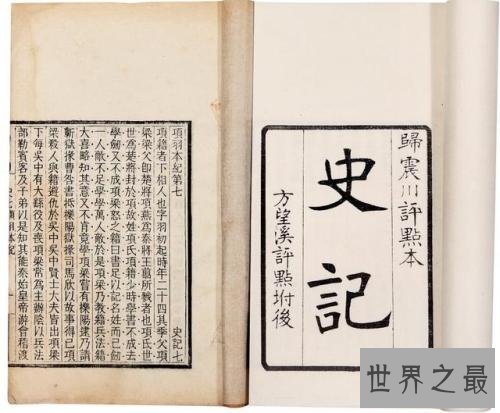 歸震川評點本
史記
方望溪評點坿後
項羽本紀第七 史記七
項籍者下相人也字羽初起時年二十四其季父項
梁梁父卽楚將項燕爲秦將王翦所戮者也項氏世
世爲楚將封於項故姓項氏項籍少時學書不成去
學劒又不成項梁怒之籍曰書足以記名姓而已劒
一人敵不足學學萬人敵於是項梁乃敎籍兵法籍
大喜略知其意又不肯竟學項梁嘗有櫟陽逮乃請
蘄獄掾曹咎書抵櫟陽獄掾司馬欣以故事得已項
梁殺人與籍避仇於吳中吳中賢士大夫皆出項梁
下每吳中有大繇役及喪項梁常爲主辦陰以兵法
部勒賓客及子弟以是知其能秦始皇帝游會稽渡
世界之最